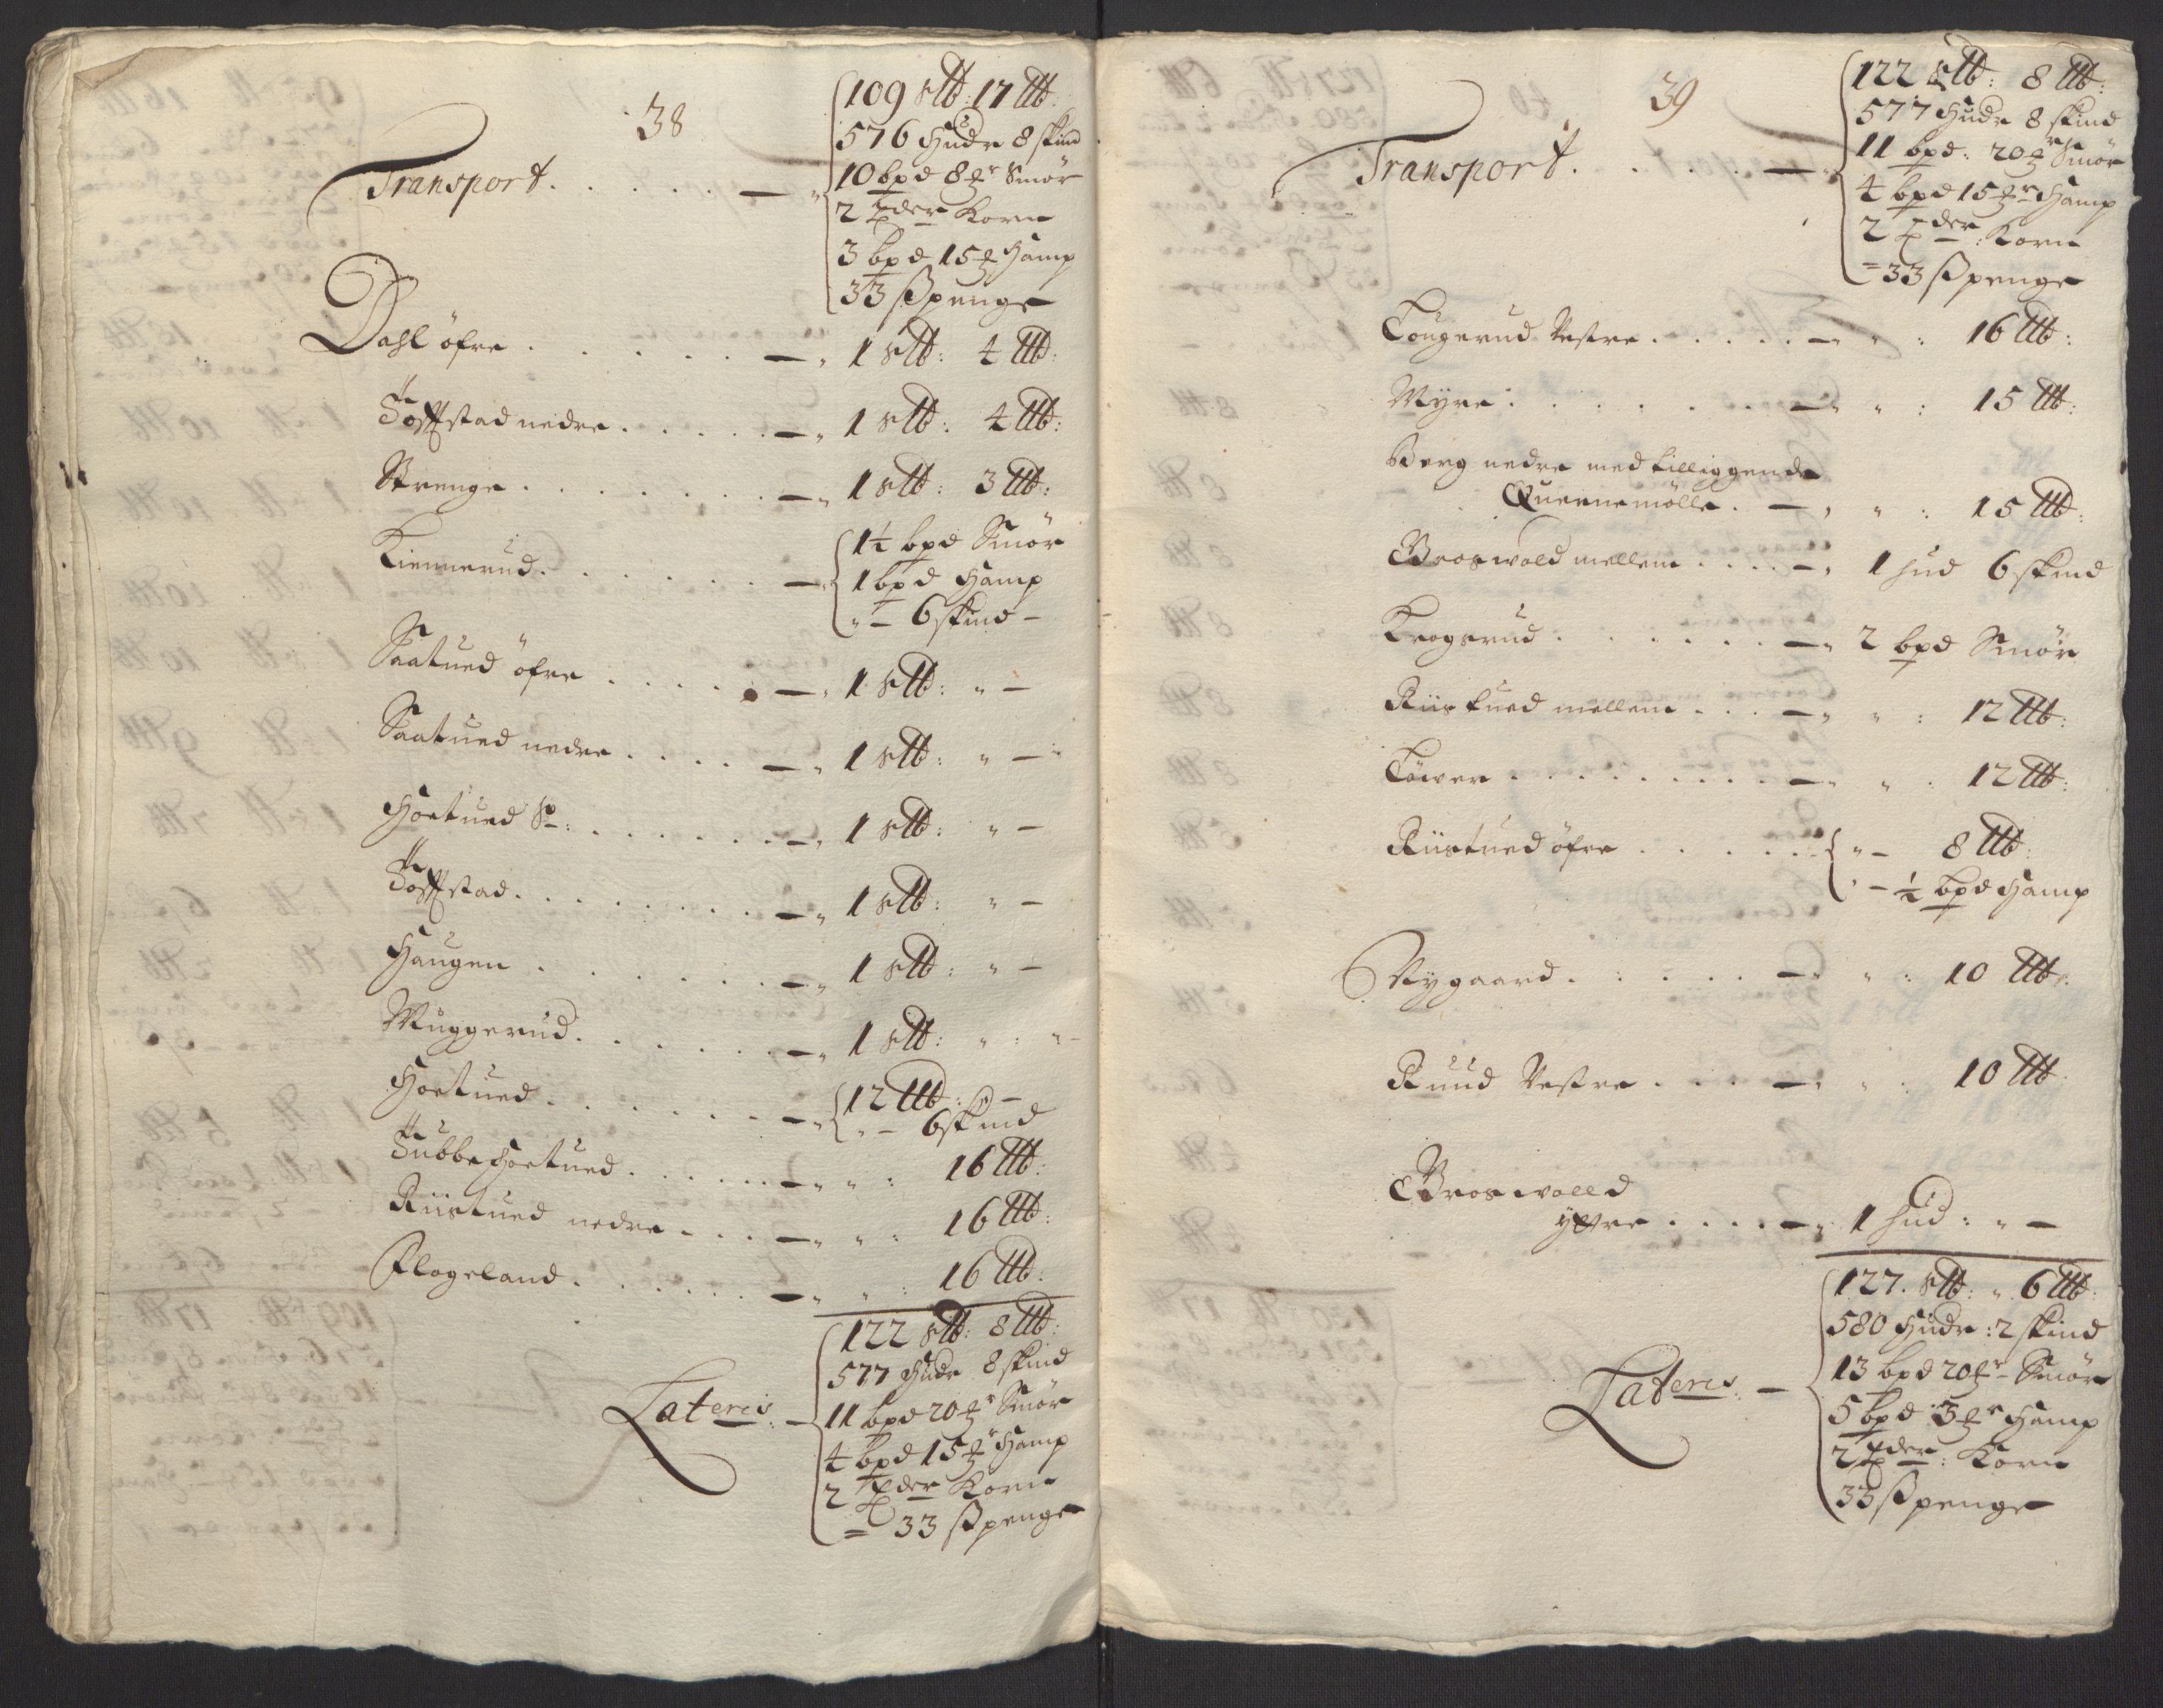 38
Transport . . . . . — " 109 s℔: 17 l℔:
576 Huder 8 skind
10 bpd 8 ₰r Smör
2 Tder Korn
3 bpd 15 ₰ Hamp
33 ß penge
Dahl öfre . . . . . . — " 1 s℔: 4 l℔:
Toffstad nedre . . . . . — " 1 s℔: 4 l℔:
Strenge . . . . . . . — " 1 s℔: 3 l℔:
Kinnerud . . . . . . — " 1½ bpd Smör
1 bpd Hamp
" — 6 skind —
Saatued öfre . . . . . — " 1 s℔: " —
Saatued nedre . . . . — " 1 s℔: " —
Hoetued . . . . . . . — " 1 s℔: " —
Toffstad . . . . . . . — " 1 s℔: " —
Haugen . . . . . . . — " 1 s℔: " —
Muggerud . . . . . . — " 1 s℔: " : " —
Hoetued . . . . . . . — " 12 l℔: —
" — 6 skind
Tubbehoetued . . . . . — " " : 16 l℔:
Riistued nedre . . . — " " : 16 l℔:
Flogeland . . . . . . — " " : 16 l℔:
Lateris: — 122 s℔: 8 l℔:
577 Huder 8 skind
11 bpd 20 ₰r Smör
4 bpd 15 ₰r Hamp
2 Tder Korn
= 33 ß penge
39
Transport . . . . — " 122 s℔: 8 l℔:
577 Huder 8 skind
11 bpd: 20 ₰r Smör
4 bpd 15 ₰r Hamp
2 Tder: Korn
= 33 ß penge
Tougerud Vestre . . . . . — " " : 16 l℔:
Myre . . . . . . . — " " : 15 l℔:
Berg nedre med tilliggende
Quernemölle . — " " : 15 l℔:
Broswold mellem . . . . — " 1 hud 6 skind
Krogsrud . . . . . . — " 2 bpd Smör
Riistued mellem . . . — " " : 12 l℔:
Töwer . . . . . . . . — " " . 12 l℔:
Riistued öfre . . . . . " — 8 l℔:
" — ½ bpd Hamp
Nygaard . . . . . — " " : 10 l℔:
Ruud Vestre . . . — " " . 10 l℔:
Broswolld
yttre . . . . — " 1 hud : " —
Lateris: — 127. s℔: " 6 l℔:
580 Huder : 2 skind
13 bpd 20 ₰r Smör
5 bpd 3 ₰r Hamp
2 Tder: Korn
33 ß penge